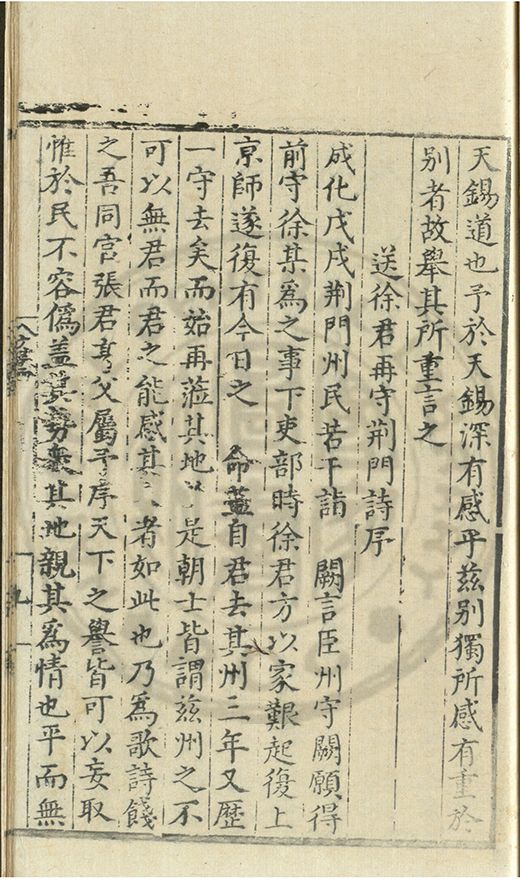 天錫道也予於天錫深有感乎茲别獨所感有重於
别者故舉其所重言之
送徐君再守荆門詩序
成化戊戌荆門州民若干詣 闕言臣州守闕願得
前守徐某為之事下吏部時徐君方以家艱起復上
京師遂復有今日之 命蓋自君去其州三年又歷
一守去矣而始再蒞其地 是朝士皆謂茲州之不
可以無君而君之能感其 者如此也乃為歌詩餞
之吾同官張君亨父屬予序天下之譽皆可以妄取
惟於民不容僞盖其勢 其地親其為情也平而無
九